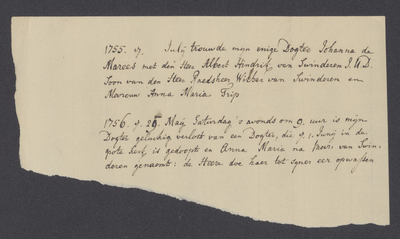 1755. 17. Julij trouwde mijn enige Dogter Johanna de
Marees met den Heer Albert Hindrik van Swinderen J.U.D.
Soon van den Heer Raedsheer Wibbe van Swinderen en
Mevrouw Anna Maria Trip
1756. 9. 25 Maij Saturdag 's avonds om 9. uur is mijn
Dogter geluckig verlost van een Dogter, die 9. 1. Junij in de
grote kerk is gedoopt en Anna Maria na Mevr. van Swin-
deren genaemt: de Heere doe haer tot syner eer opwassen